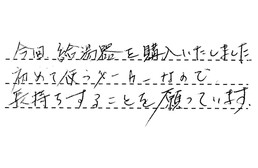 今回 給湯器を購入いたしました
初めて使うメーカーなので
長持ちすることを願っています.